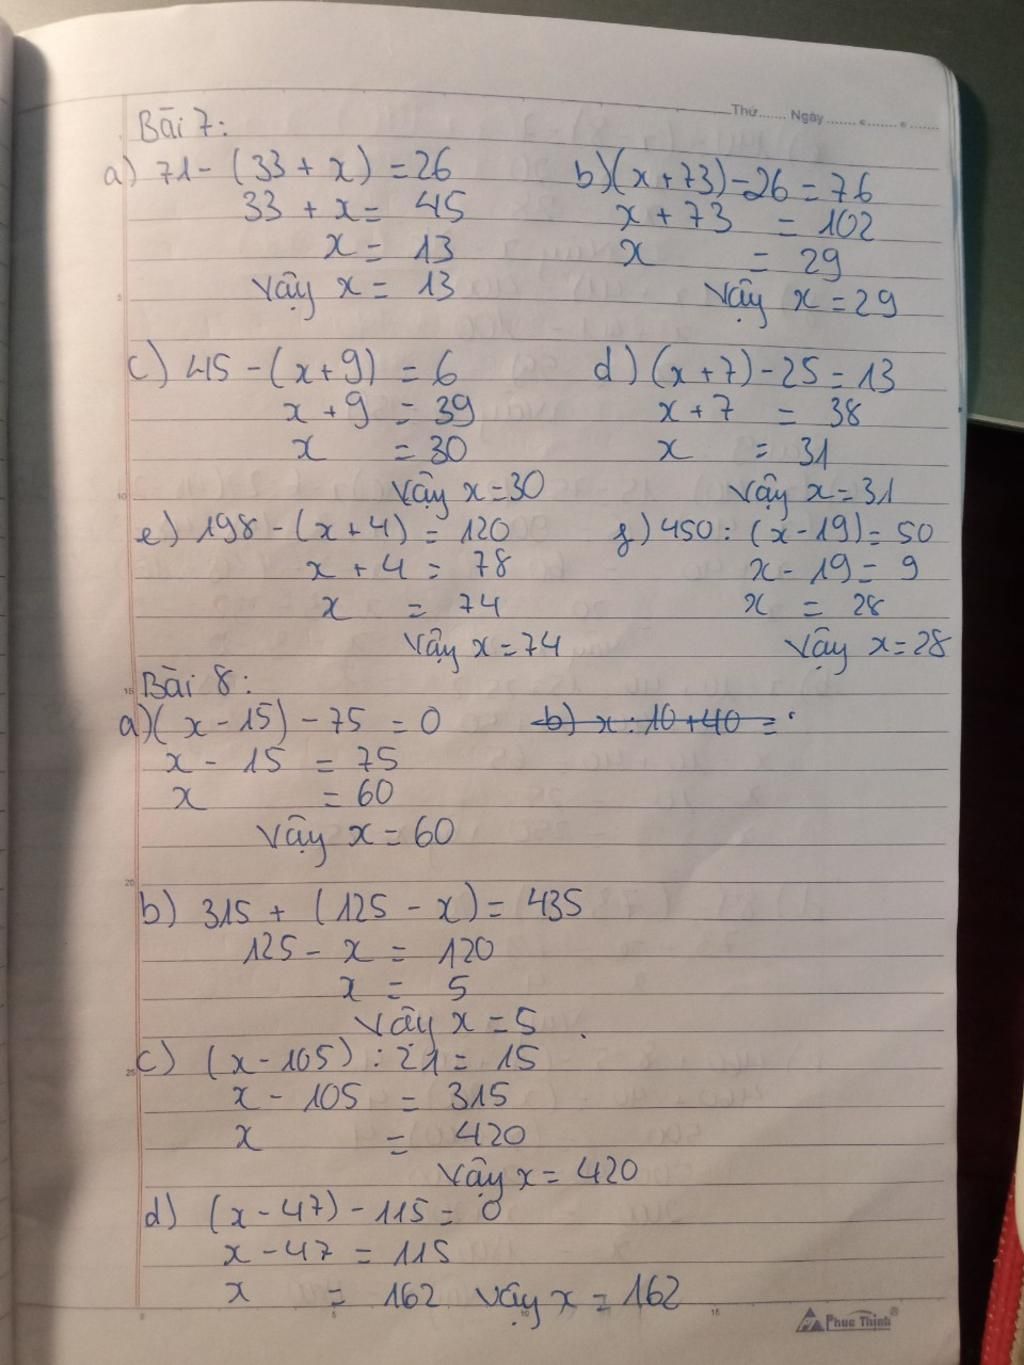 Thứ...... Ngày ...... . ...... . ......
Bài 7:
a) 71 - (33 + x) = 26
33 + x = 45
x = 13
Vậy x = 13
b) (x + 73) - 26 = 76
x + 73 = 102
x = 29
Vậy x = 29
c) 45 - (x + 9) = 6
x + 9 = 39
x = 30
Vậy x = 30
d) (x + 7) - 25 = 13
x + 7 = 38
x = 31
Vậy x = 31
e) 198 - (x + 4) = 120
x + 4 = 78
x = 74
Vậy x = 74
f) 450 : (x - 19) = 50
x - 19 = 9
x = 28
Vậy x = 28
Bài 8:
a) (x - 15) - 75 = 0
x - 15 = 75
x = 60
Vậy x = 60
b) x : 10 + 40 =
b) 315 + (125 - x) = 435
125 - x = 120
x = 5
Vậy x = 5
c) (x - 105) : 21 = 15
x - 105 = 315
x = 420
Vậy x = 420
d) (x - 47) - 115 = 0
x - 47 = 115
x = 162 Vậy x = 162
5
10
15
20
25
0
5
10
15
Phuc Thinh